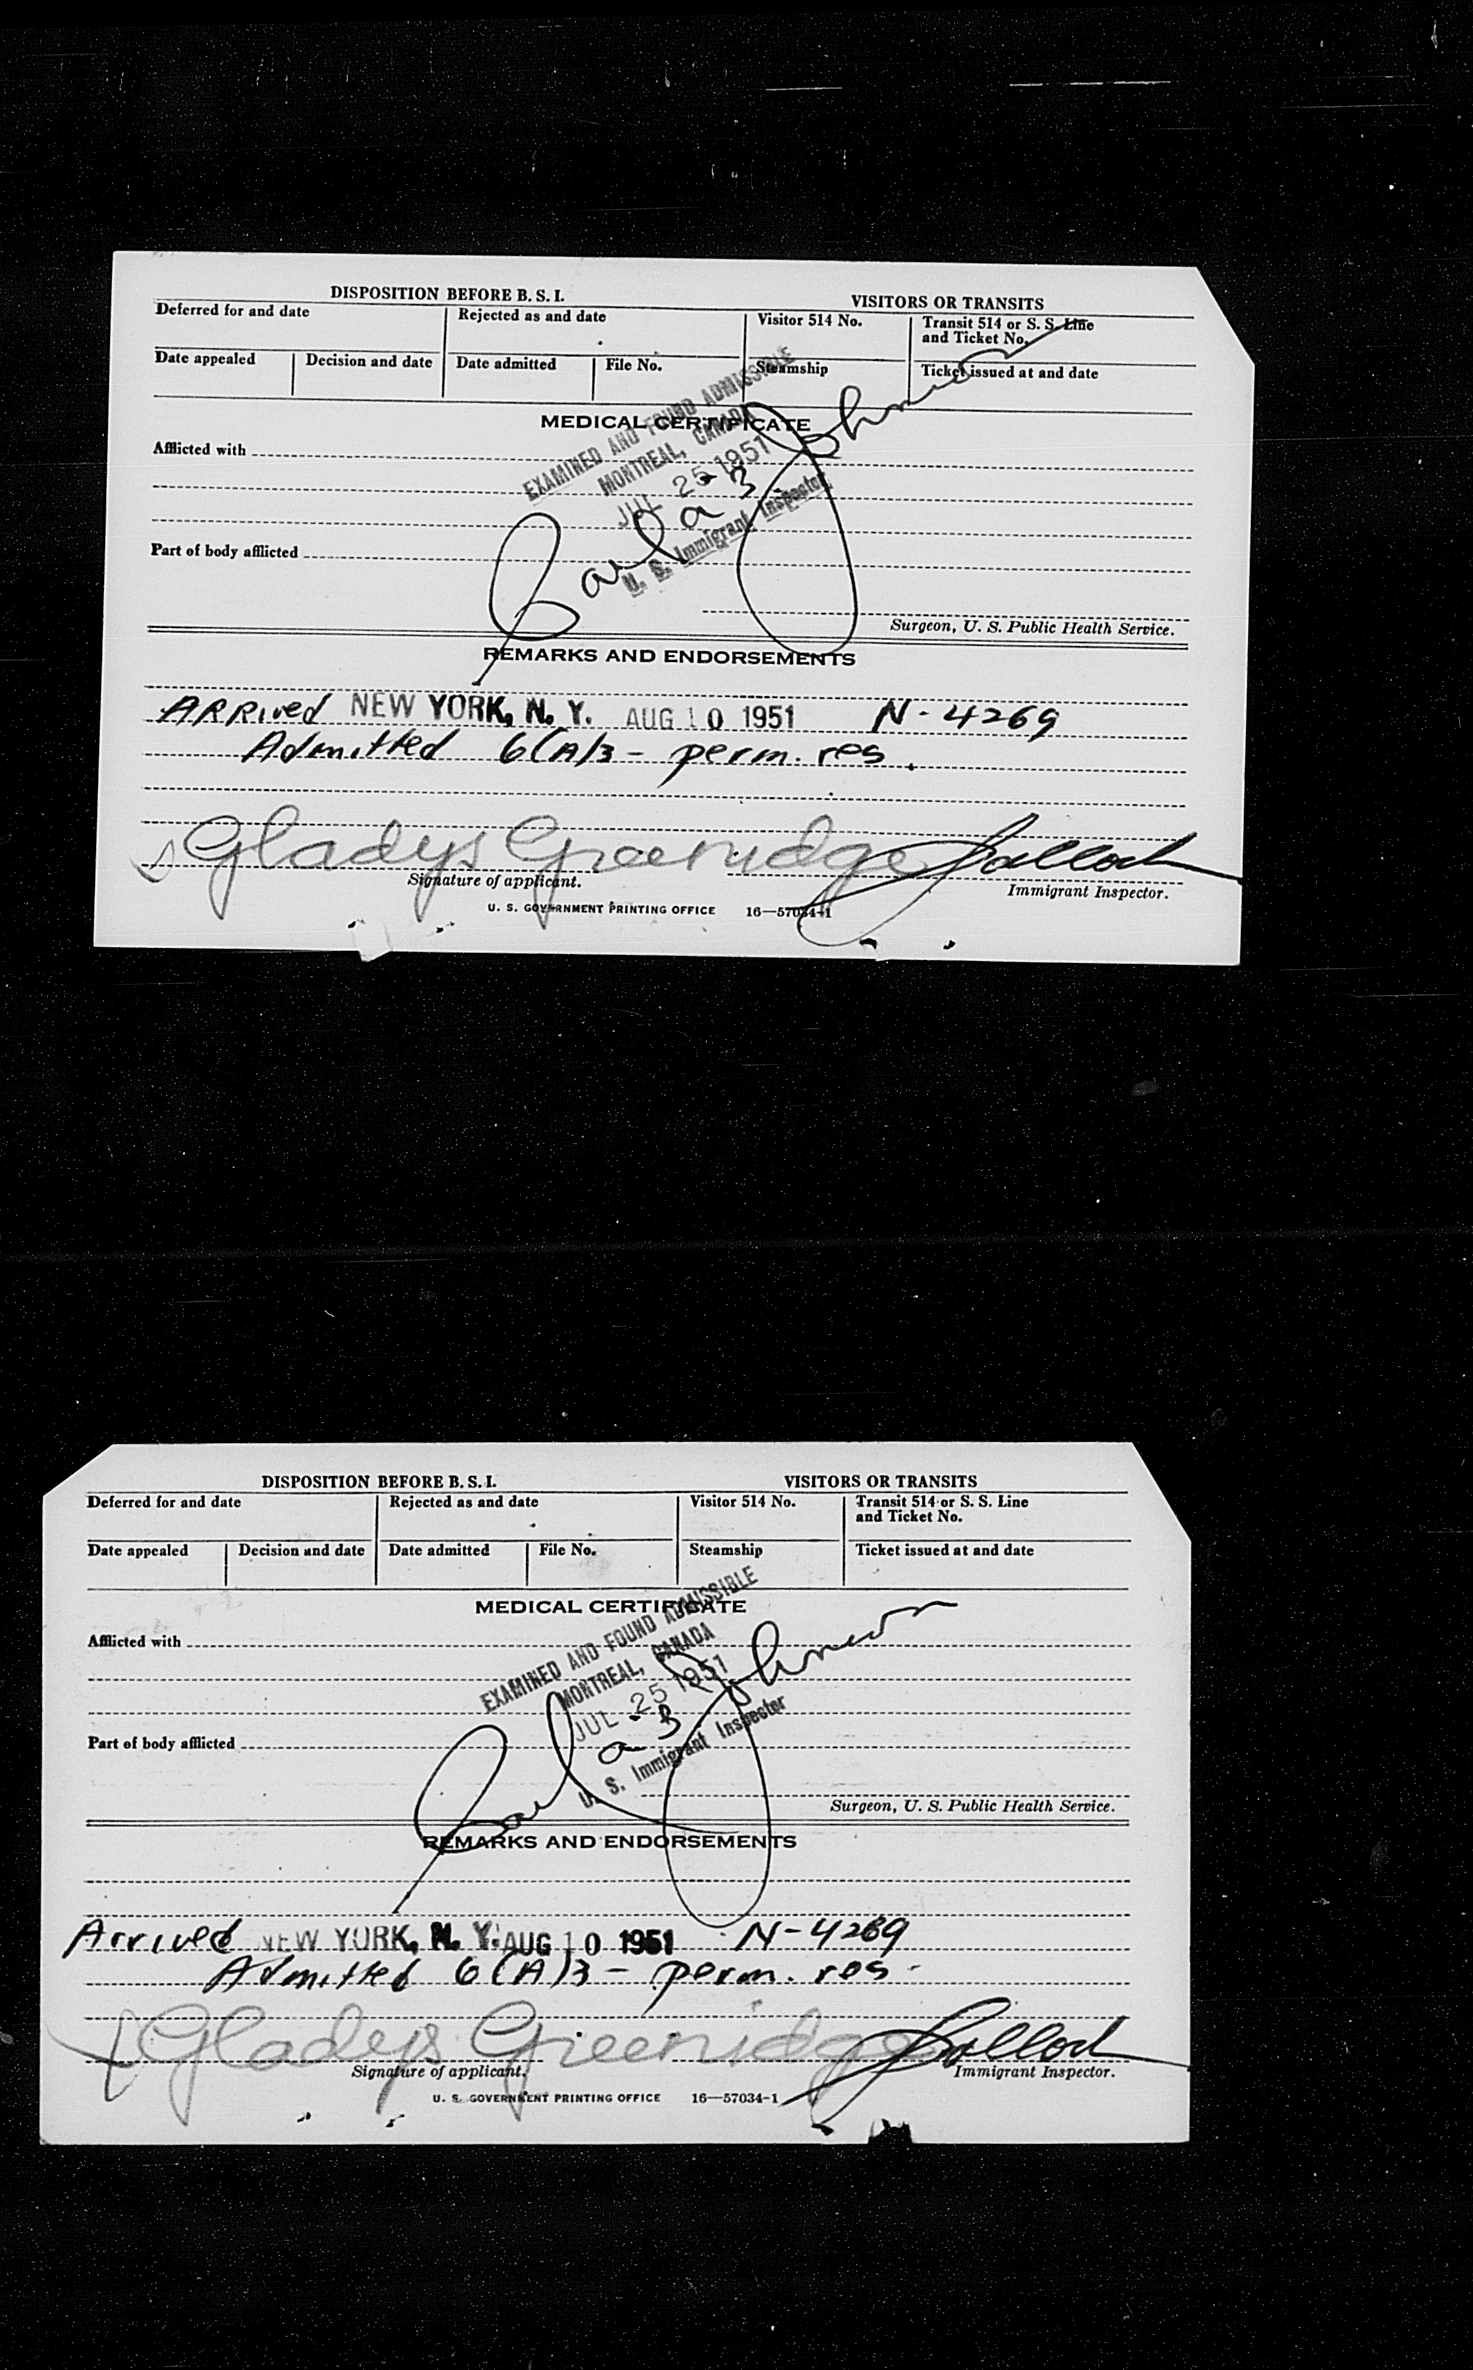 DISPOSITION BEFORE B. S. I. VISITORS OR TRANSITS
Deferred for and date Rejected as and date Visitor 514 No. Transit 514 or S. S. Line
and Ticket No.
Date appealed Decision and date Date admitted File No. Steamship Ticket issued at and date
MEDICAL CERTIFICATE
EXAMINED AND FOUND ADMISSIBLE
MONTREAL, CANADA
JUL 25 1951
U. S. Immigrant Inspector
a-3
Johnson
Afflicted with
Part of body afflicted
Surgeon, U. S. Public Health Service.
REMARKS AND ENDORSEMENTS
ARRived NEW YORK, N. Y. AUG 10 1951 N-4269
Admitted 6(A)3 - perm. res.
Gladys Greenidge
Signature of applicant. Immigrant Inspector.
U. S. GOVERNMENT PRINTING OFFICE 16—57034-1
DISPOSITION BEFORE B. S. I. VISITORS OR TRANSITS
Deferred for and date Rejected as and date Visitor 514 No. Transit 514 or S. S. Line
and Ticket No.
Date appealed Decision and date Date admitted File No. Steamship Ticket issued at and date
MEDICAL CERTIFICATE
EXAMINED AND FOUND ADMISSIBLE
MONTREAL, CANADA
JUL 25 1951
U. S. Immigrant Inspector
a-3
Johnson
Afflicted with
Part of body afflicted
Surgeon, U. S. Public Health Service.
REMARKS AND ENDORSEMENTS
Arrived NEW YORK, N. Y. AUG 10 1951 N-4269
Admitted 6(A)3 - perm. res.
Gladys Greenidge
Signature of applicant. Immigrant Inspector.
U. S. GOVERNMENT PRINTING OFFICE 16—57034-1